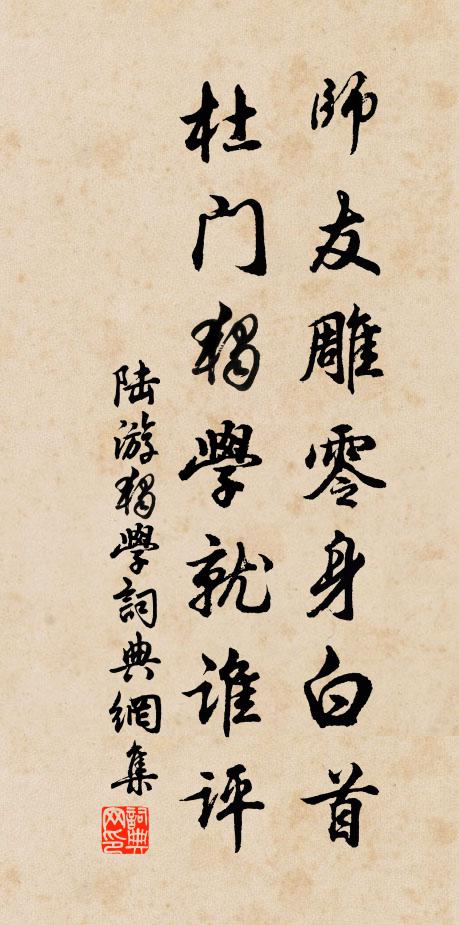 師友雕零身白首
杜門獨學就誰評
陸游獨學詞典網集
詞典网印